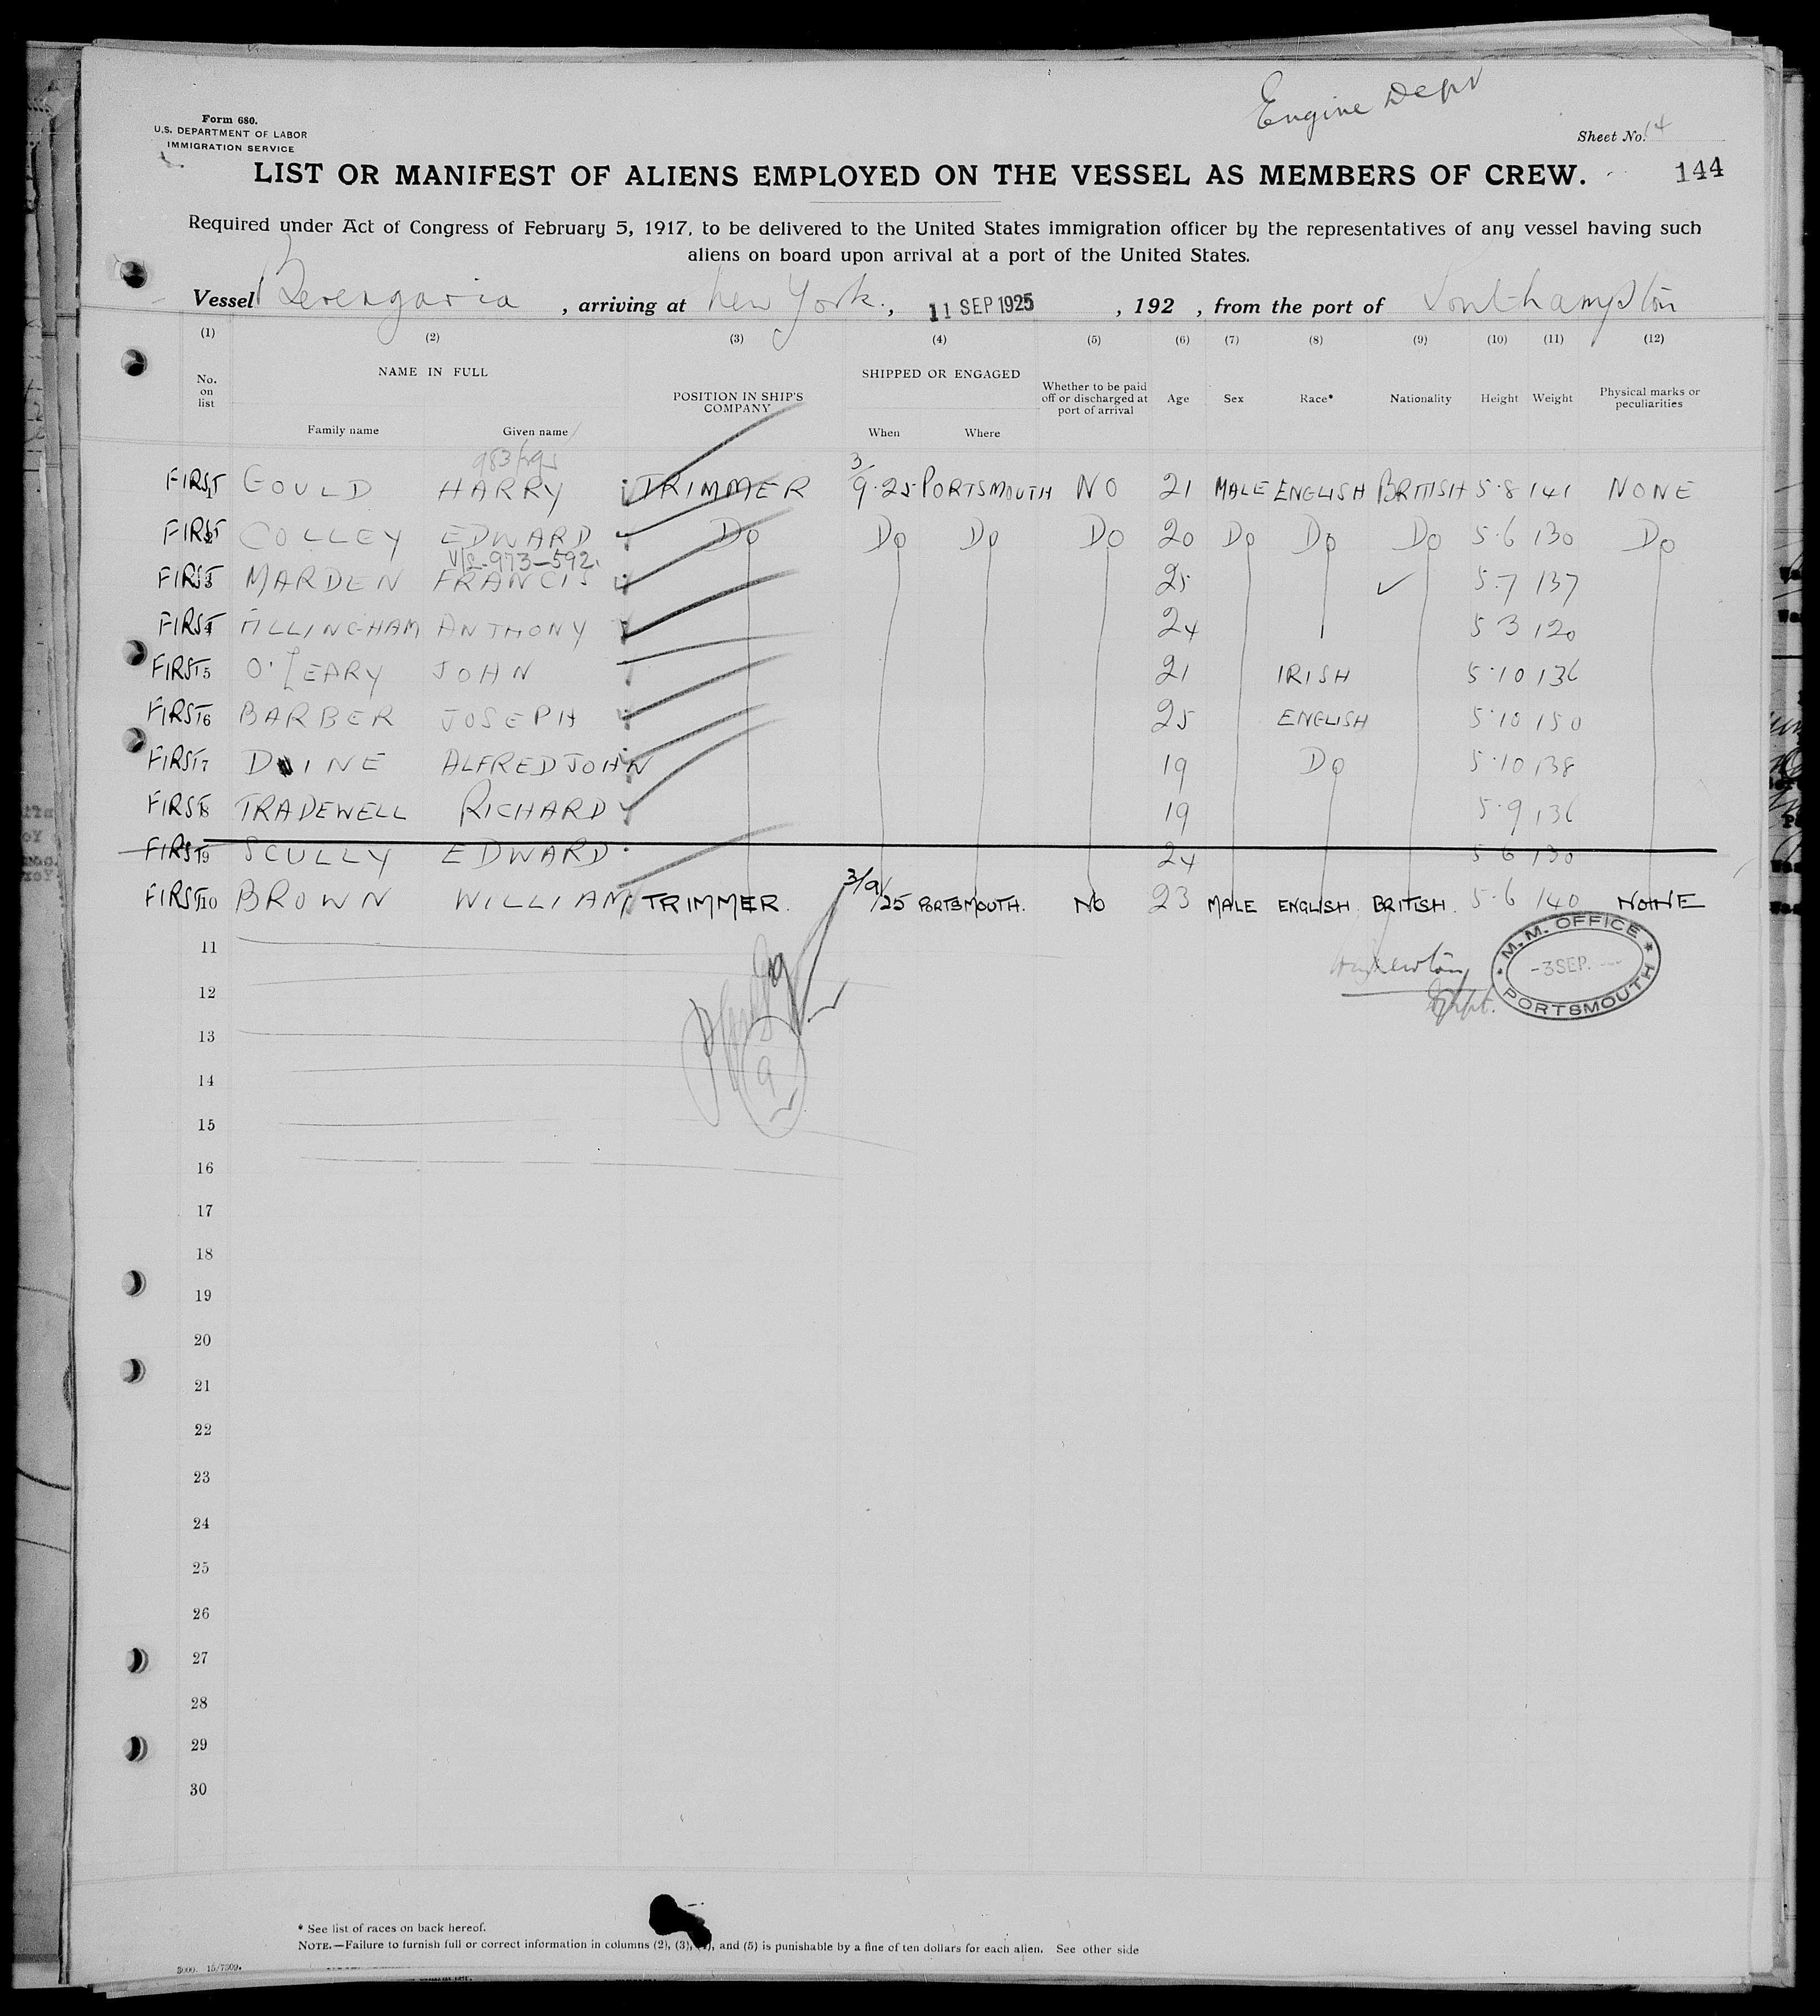 Engine Dept
Form 680.
U.S. DEPARTMENT OF LABOR
IMMIGRATION SERVICE
Sheet No. 14
LIST OR MANIFEST OF ALIENS EMPLOYED ON THE VESSEL AS MEMBERS OF CREW.
144
Required under Act of Congress of February 5, 1917, to be delivered to the United States immigration officer by the representatives of any vessel having such
aliens on board upon arrival at a port of the United States.
Vessel Berengaria, arriving at New York, 11 SEP 1925, 192 , from the port of Southampton
(1) (2) (3) (4) (5) (6) (7) (8) (9) (10) (11) (12)
No. on list NAME IN FULL Family name Given name POSITION IN SHIP'S COMPANY SHIPPED OR ENGAGED When Where Whether to be paid off or discharged at port of arrival Age Sex Race* Nationality Height Weight Physical marks or peculiarities
FIRST 1 GOULD HARRY TRIMMER 3/9.25 PORTSMOUTH NO 21 MALE ENGLISH BRITISH 5.8 141 NONE
FIRST 2 COLLEY EDWARD Do Do Do Do 20 Do Do Do 5.6 130 Do
V/2-973-592.
FIRST 3 MARDEN FRANCIS 25 5.7 137
FIRST 4 FILLINGHAM ANTHONY 24 5 3 120
FIRST 5 O'LEARY JOHN 21 IRISH 5.10 136
FIRST 6 BARBER JOSEPH 25 ENGLISH 5.10 150
FIRST 7 DINE ALFRED JOHN 19 Do 5.10 138
FIRST 8 TRADEWELL RICHARD 19 5.9 136
FIRST 9 SCULLY EDWARD 24 5 6 130
FIRST 10 BROWN WILLIAM TRIMMER. 3/9/25 PORTSMOUTH. NO 23 MALE ENGLISH BRITISH. 5.6 140 NONE
M.M. OFFICE
-3 SEP.
PORTSMOUTH
11
12
13
14
9
15
16
17
18
19
20
21
22
23
24
25
26
27
28
29
30
* See list of races on back hereof.
NOTE.—Failure to furnish full or correct information in columns (2), (3), (4), and (5) is punishable by a fine of ten dollars for each alien. See other side
5000. 15/7309.